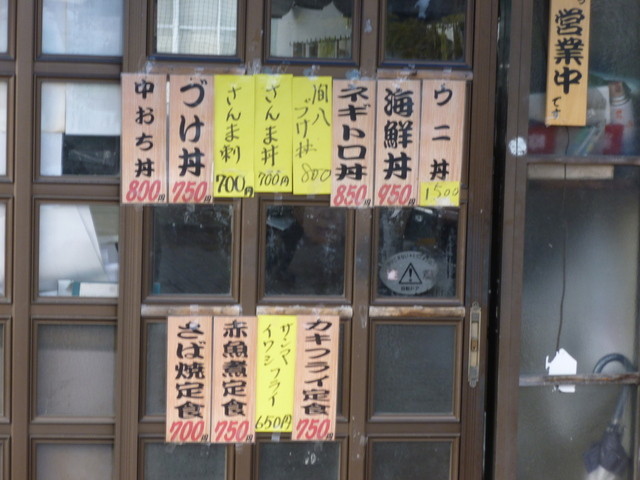 営業中
です
ウニ丼
1500
海鮮丼
950円
ネギトロ丼
850円
間八
づけ丼
800
さんま丼
700円
さんま刺
700円
づけ丼
750円
中おち丼
800円
カキフライ定食
750円
サンマ
イワシフライ
650円
赤魚煮定食
750円
さば焼定食
700円